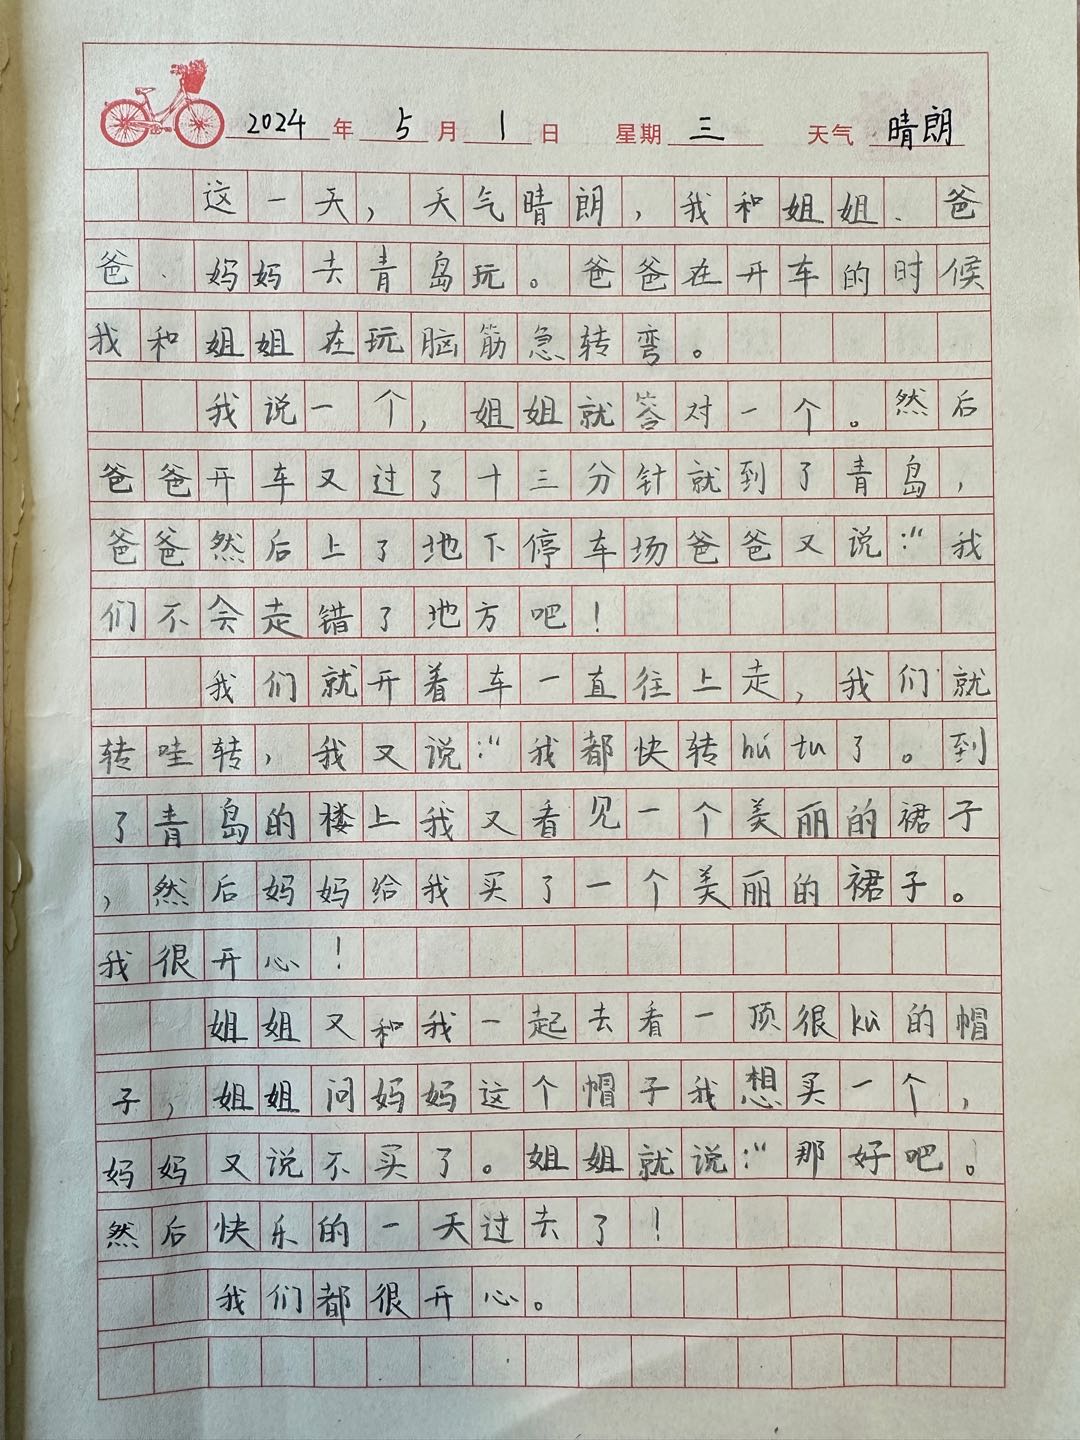 2024年5月1日 星期三 天气晴朗
这一天，天气晴朗，我和姐姐、爸
爸、妈妈去青岛玩。爸爸在开车的时候
我和姐姐在玩脑筋急转弯。
我说一个，姐姐就答对一个。然后
爸爸开车又过了十三分针就到了青岛，
爸爸然后上了地下停车场爸爸又说：“我
们不会走错了地方吧！
我们就开着车一直往上走，我们就
转哇转，我又说：“我都快转hú tu了。到
了青岛的楼上我又看见一个美丽的裙子
，然后妈妈给我买了一个美丽的裙子。
我很开心！
姐姐又和我一起去看一顶很kù的帽
子，姐姐问妈妈这个帽子我想买一个，
妈妈又说不买了。姐姐就说：“那好吧。
然后快乐的一天过去了！
我们都很开心。